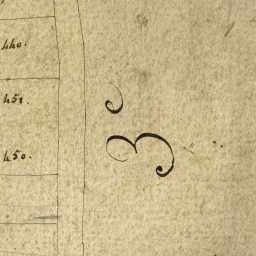 440.
451.
450.
3 e